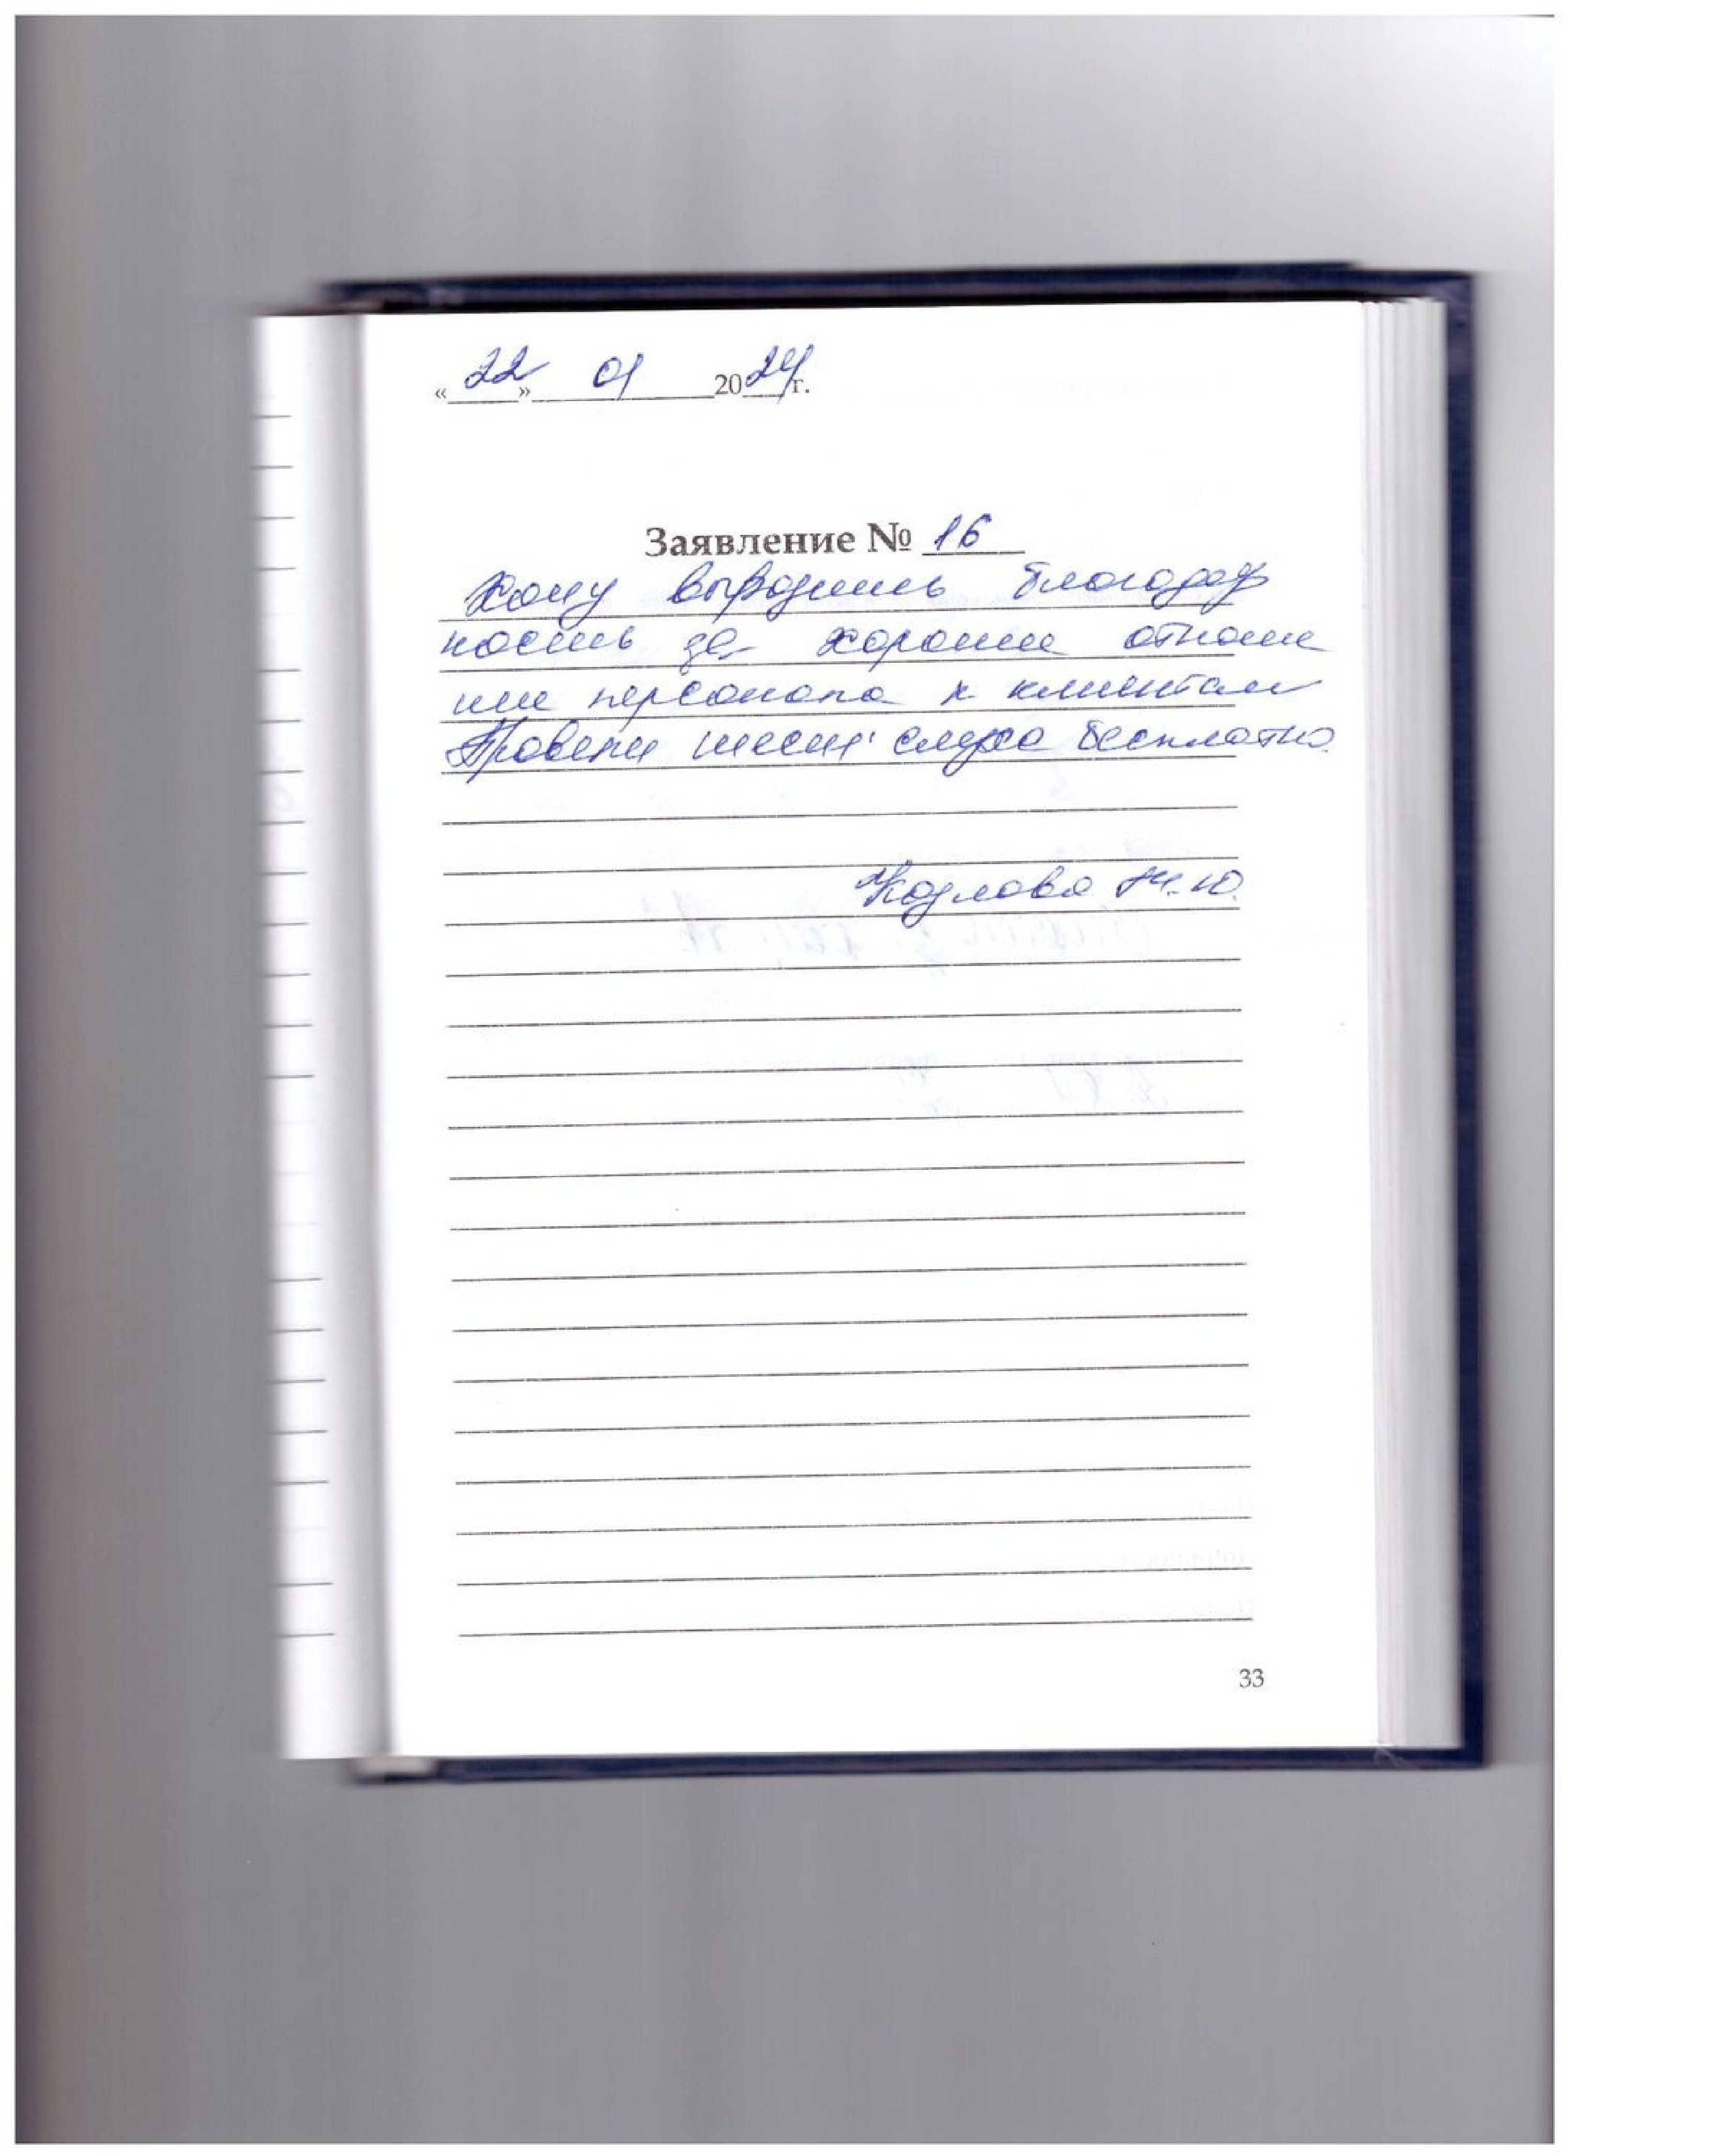 «22» 01 2024г.
Заявление № 16
Хочу выразить благодар
ность за хорошее отноше
ние персонала к клиентам
Провели тест слуха бесплатно.
Козлова Н.Ю.
33